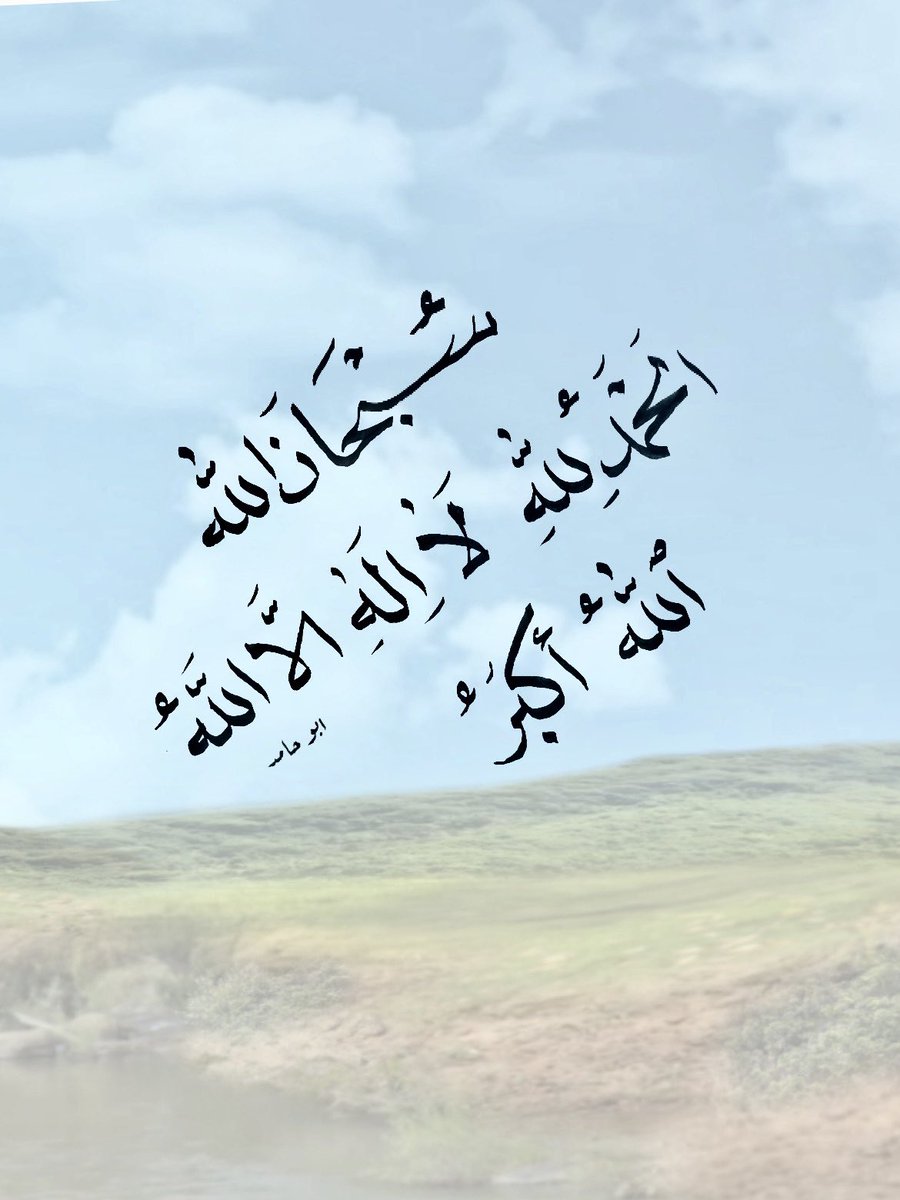 سُبْحَانَ اللّٰه
الحَمْدُ لِلّٰهِ
لَا إِلٰهَ الَّا اللَّهُ
اللّٰهُ أَكْبَرُ
ابو حامد